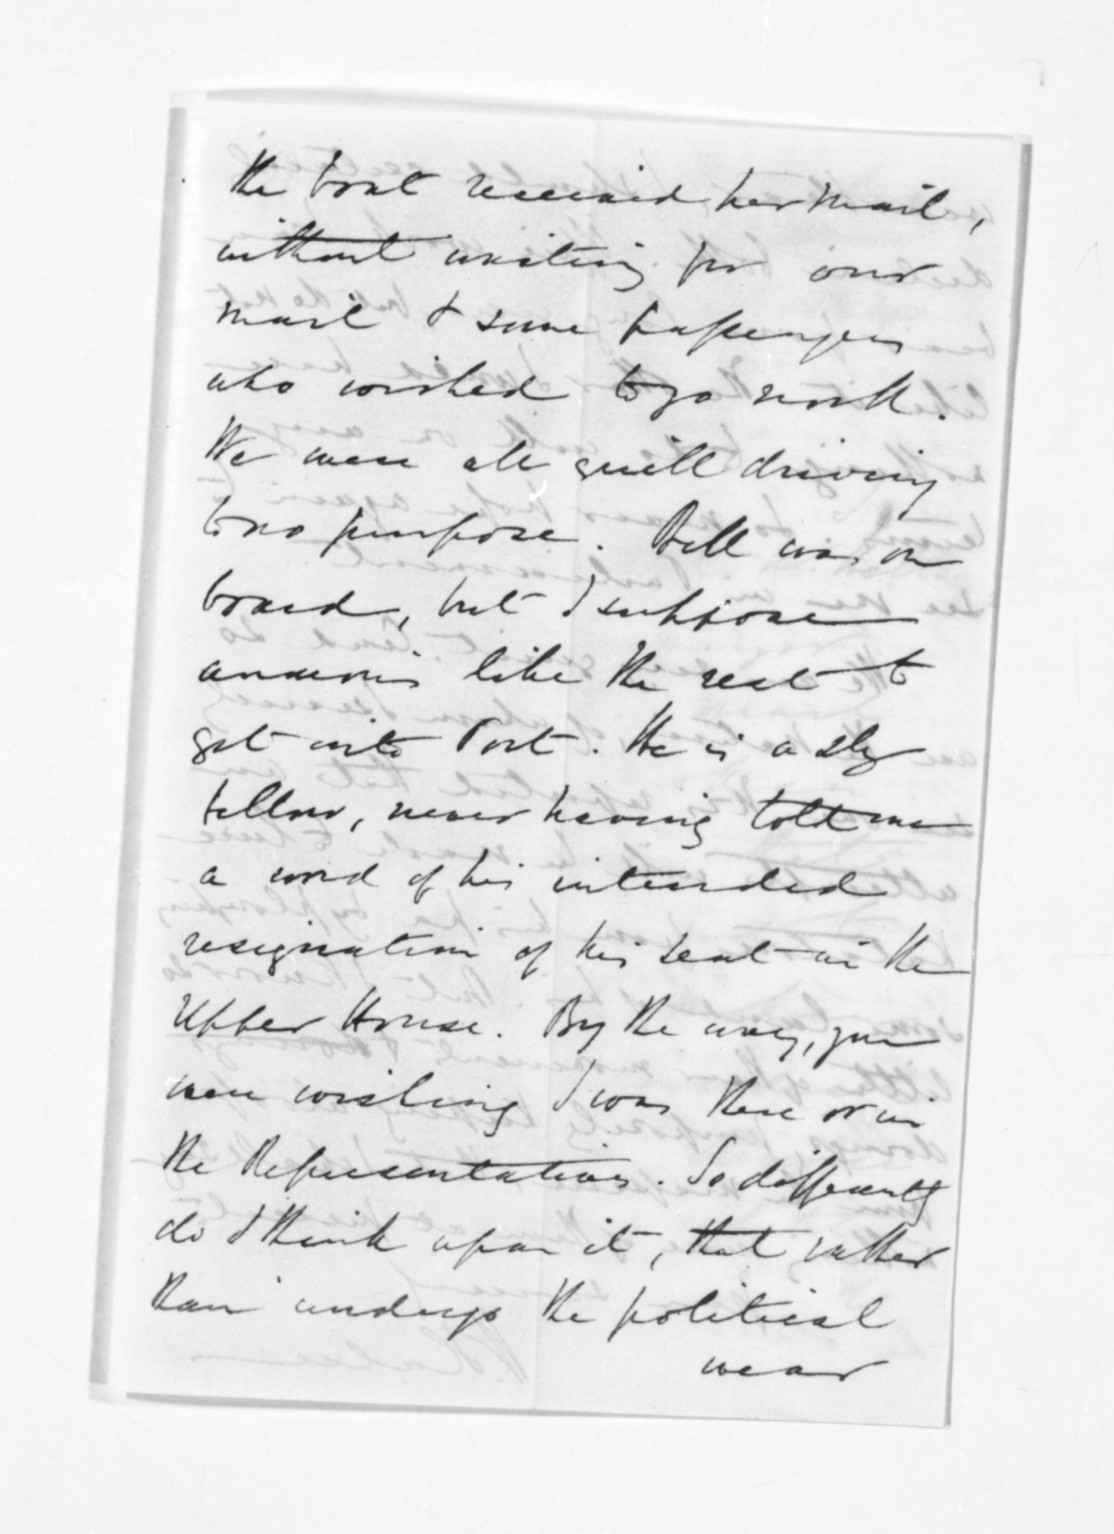 the boat received her Mail,
without waiting for our
mail & some passengers
who wished to go north.
We were all quill driving
to no purpose. Bell was on
board, but I suppose
anxious like the rest to
get into Port. He is a sly
fellow, never having told me
a word of his intended
resignation of his seat in the
Upper House. By the way, you
were wishing I was there or in
the Representatives. So differently
do I think upon it, that rather
than undergo the political
wear